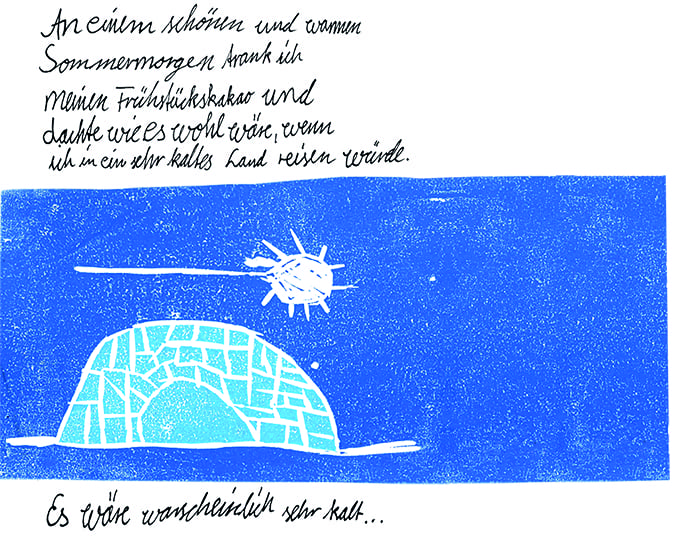 An einem schönen und warmen
Sommermorgen trank ich
meinen Frühstückskakao und
dachte wie es wohl wäre, wenn
ich in ein sehr kaltes Land reisen würde.
Es wäre warscheinlich sehr kalt...